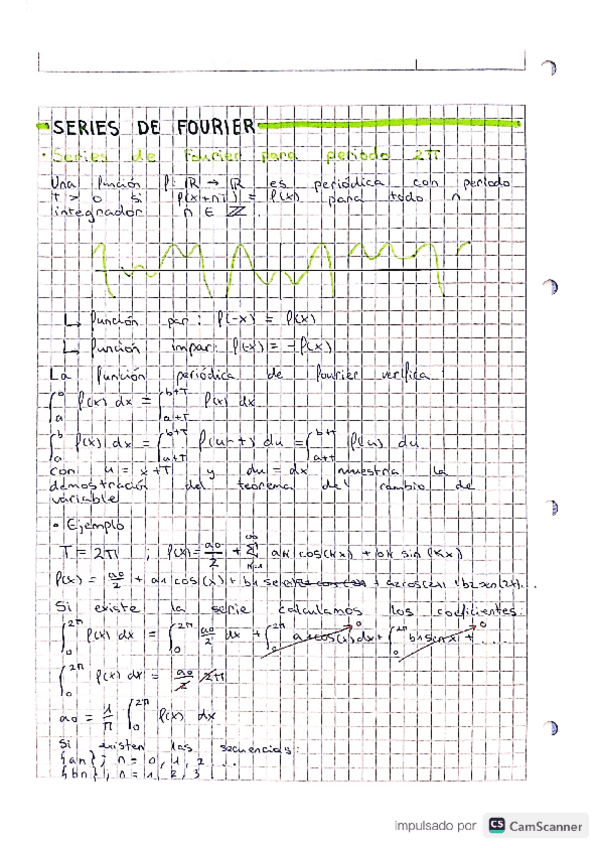 SERIES DE FOURIER
· Series de Fourier para periodo 2π
Una función f: ℝ → ℝ es periódica con periodo
T > 0 si f(x+nT) = f(x) para todo n
integrador n ∈ ℤ.
↳ función par: f(-x) = f(x)
↳ función impar: f(-x) = -f(x)
La función periódica de fourier verifica
∫_a^b f(x) dx = ∫_{a+T}^{b+T} f(x) dx
∫_a^b f(x) dx = ∫_{a+T}^{b+T} f(u-t) du = ∫_{a+t}^{b+t} f(u) du
con u = x+T y du = dx muestra la
demostración del teorema del cambio de
variable
• Ejemplo
T = 2π ; f(x) = a0/2 + Σ_{k=1}^∞ ak cos(kx) + bk sin(kx)
f(x) = a0/2 + a1 cos(x) + b1 + a2 cos(2x) + b2 sen(2x)...
Si existe la serie calculamos los coeficientes:
∫_0^{2π} f(x) dx = ∫_0^{2π} a0/2 dx + ∫_0^{2π} a1 cos(x) dx + ∫_0^{2π} b1 sin x + ...
0 0
∫_0^{2π} f(x) dx = a0/2 2π
a0 = 1/π ∫_0^{2π} f(x) dx
Si existen las secuencias:
{an}; n = 0, 1, 2 ...
{bn}; n = 1, 2, 3
impulsado por CS CamScanner